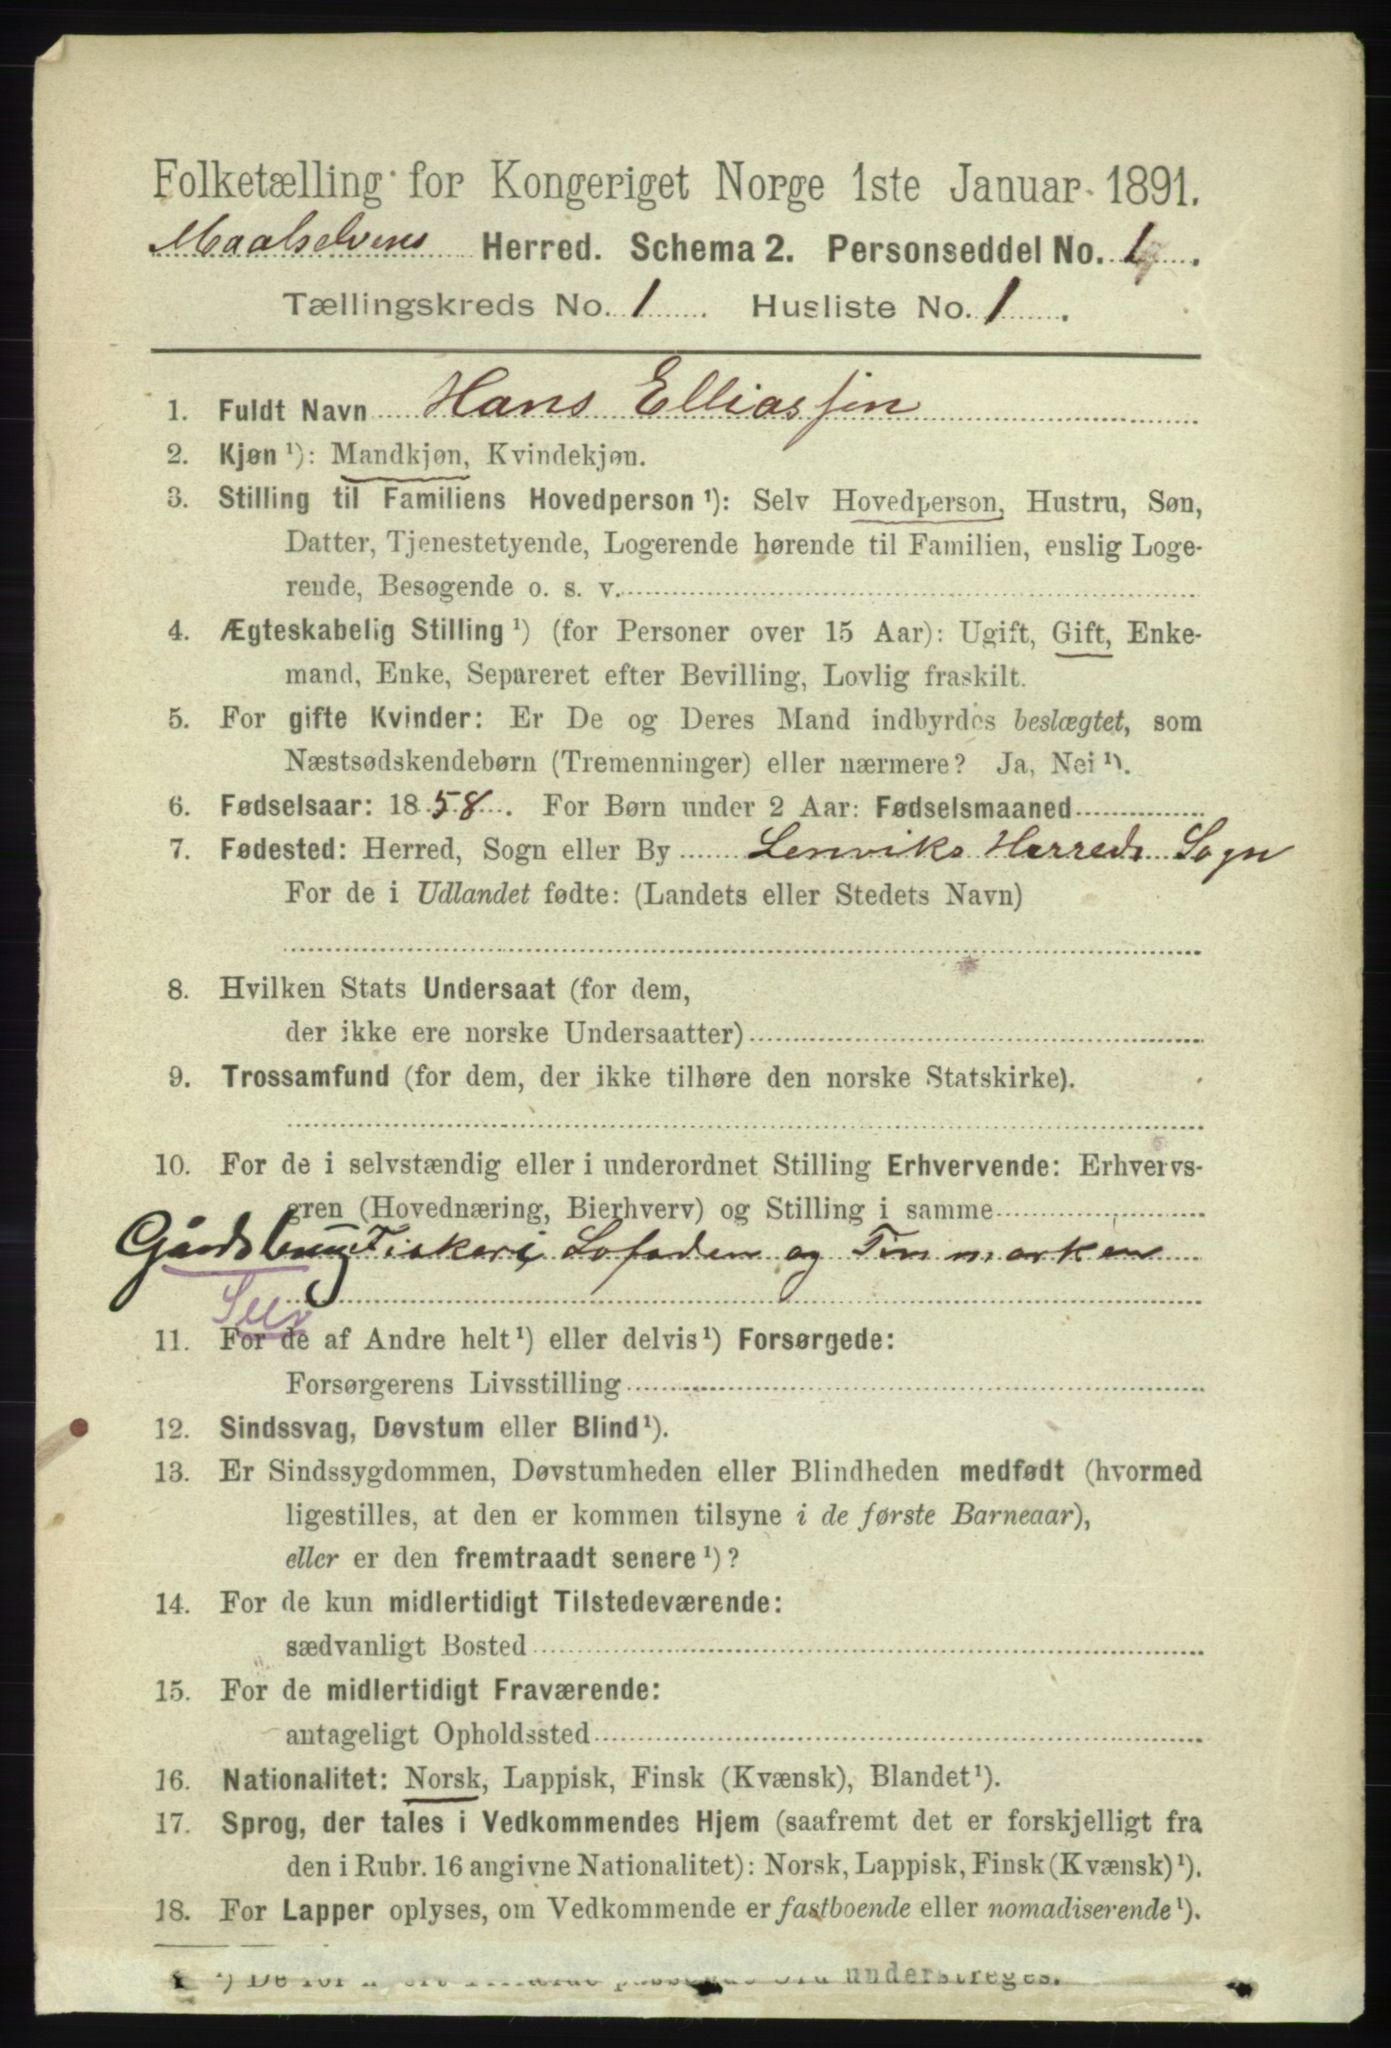 Folketælling for Kongeriget Norge 1ste Januar 1891.
Maalselvens Herred. Schema 2. Personseddel No. 1.
Tællingskreds No. 1. Husliste No. 1.
1. Fuldt Navn Hans Elliassen
2. Kjøn ¹): Mandkjøn, Kvindekjøn.
3. Stilling til Familiens Hovedperson ¹): Selv Hovedperson, Hustru, Søn,
Datter, Tjenestetyende, Logerende hørende til Familien, enslig Loge-
rende, Besøgende o. s. v.
4. Ægteskabelig Stilling ¹) (for Personer over 15 Aar): Ugift, Gift, Enke-
mand, Enke, Separeret efter Bevilling, Lovlig fraskilt.
5. For gifte Kvinder: Er De og Deres Mand indbyrdes beslægtet, som
Næstsødskendebørn (Tremenninger) eller nærmere? Ja, Nei ¹).
6. Fødselsaar: 1858. For Børn under 2 Aar: Fødselsmaaned
7. Fødested: Herred, Sogn eller By Lenviks Herreds Sogn
For de i Udlandet fødte: (Landets eller Stedets Navn)
8. Hvilken Stats Undersaat (for dem,
der ikke ere norske Undersaatter)
9. Trossamfund (for dem, der ikke tilhøre den norske Statskirke).
10. For de i selvstændig eller i underordnet Stilling Erhvervende: Erhvervs-
gren (Hovednæring, Bierhverv) og Stilling i samme
Gårdsbrug Fisker i Lofoden og Finmarken
Selv
11. For de af Andre helt ¹) eller delvis ¹) Forsørgede:
Forsørgerens Livsstilling
12. Sindssvag, Døvstum eller Blind ¹).
13. Er Sindssygdommen, Døvstumheden eller Blindheden medfødt (hvormed
ligestilles, at den er kommen tilsyne i de første Barneaar),
eller er den fremtraadt senere ¹)?
14. For de kun midlertidigt Tilstedeværende:
sædvanligt Bosted
15. For de midlertidigt Fraværende:
antageligt Opholdssted
16. Nationalitet: Norsk, Lappisk, Finsk (Kvænsk), Blandet ¹).
17. Sprog, der tales i Vedkommendes Hjem (saafremt det er forskjelligt fra
den i Rubr. 16 angivne Nationalitet): Norsk, Lappisk, Finsk (Kvænsk) ¹).
18. For Lapper oplyses, om Vedkommende er fastboende eller nomadiserende ¹).
¹) De for understreges.